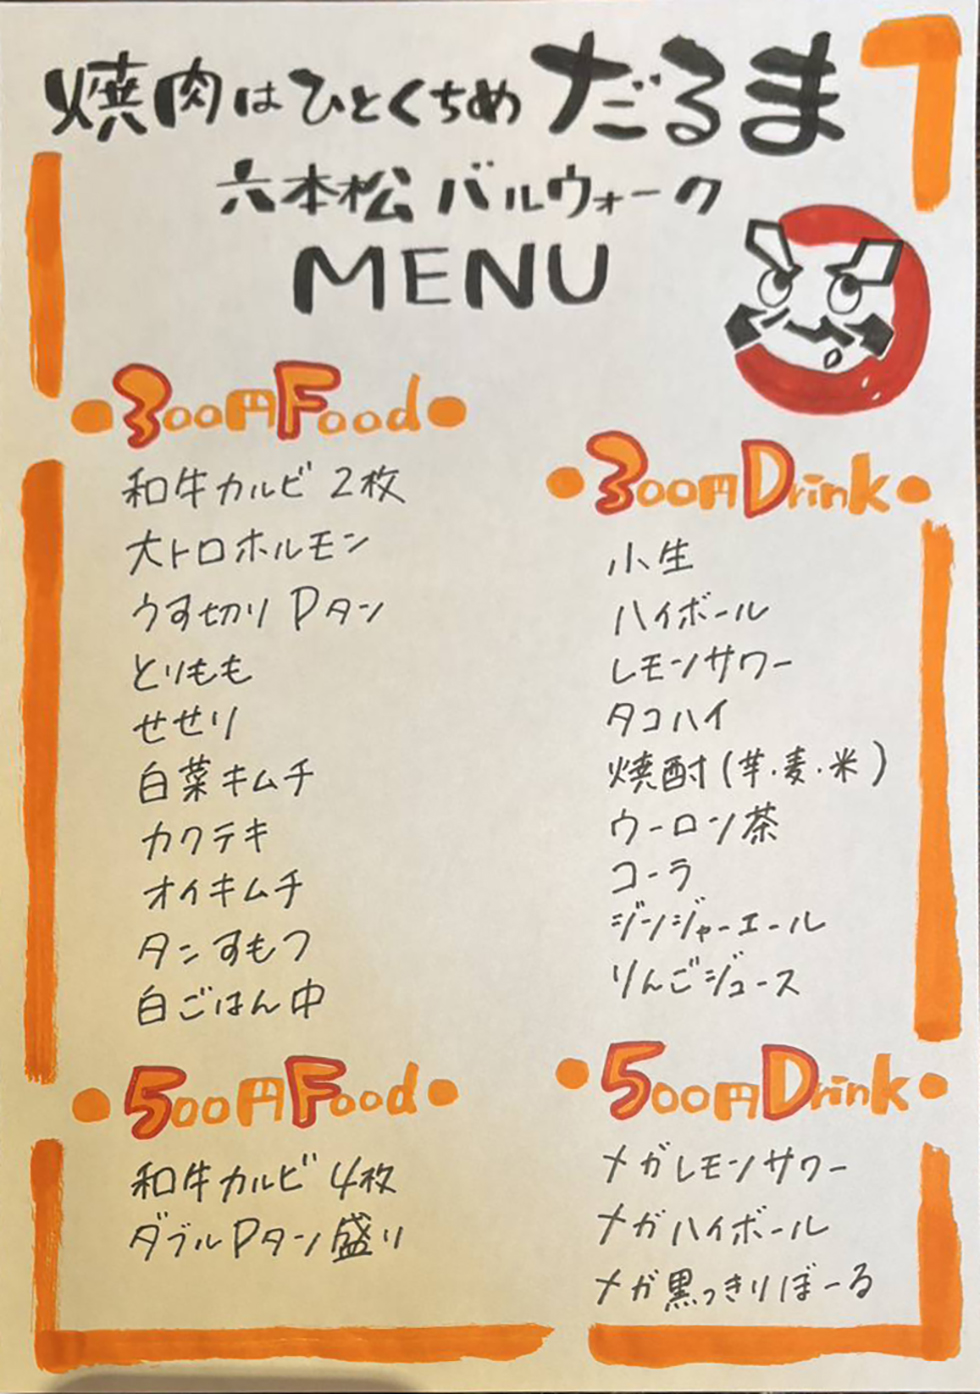 焼肉はひとくちめ だるま
六本松 バルウォーク
MENU
300円Food
和牛カルビ 2枚
大トロホルモン
うす切りPタン
とりもも
せせり
白菜キムチ
カクテキ
オイキムチ
タンすもつ
白ごはん中
500円Food
和牛カルビ 4枚
ダブルPタン盛り
300円Drink
小生
ハイボール
レモンサワー
タコハイ
焼酎(芋・麦・米)
ウーロン茶
コーラ
ジンジャーエール
りんごジュース
500円Drink
メガレモンサワー
メガハイボール
メガ黒っきりぼーる